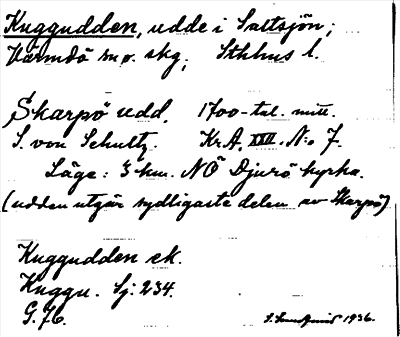 Kuggudden, udde i Saltsjön;
Värmdö m.o. skg, Sthlms l.
Skarpö udd, 1700-tal. mitt.
S. von Schultz. Kr.A. XXII. N:o 7.
Läge: 3 km. NÖ Djurö kyrka.
(udden utgör sydligaste delen av Skarpö)
Kuggudden ek.
Kuggu. Sj: 234.
G. 76.
1936.